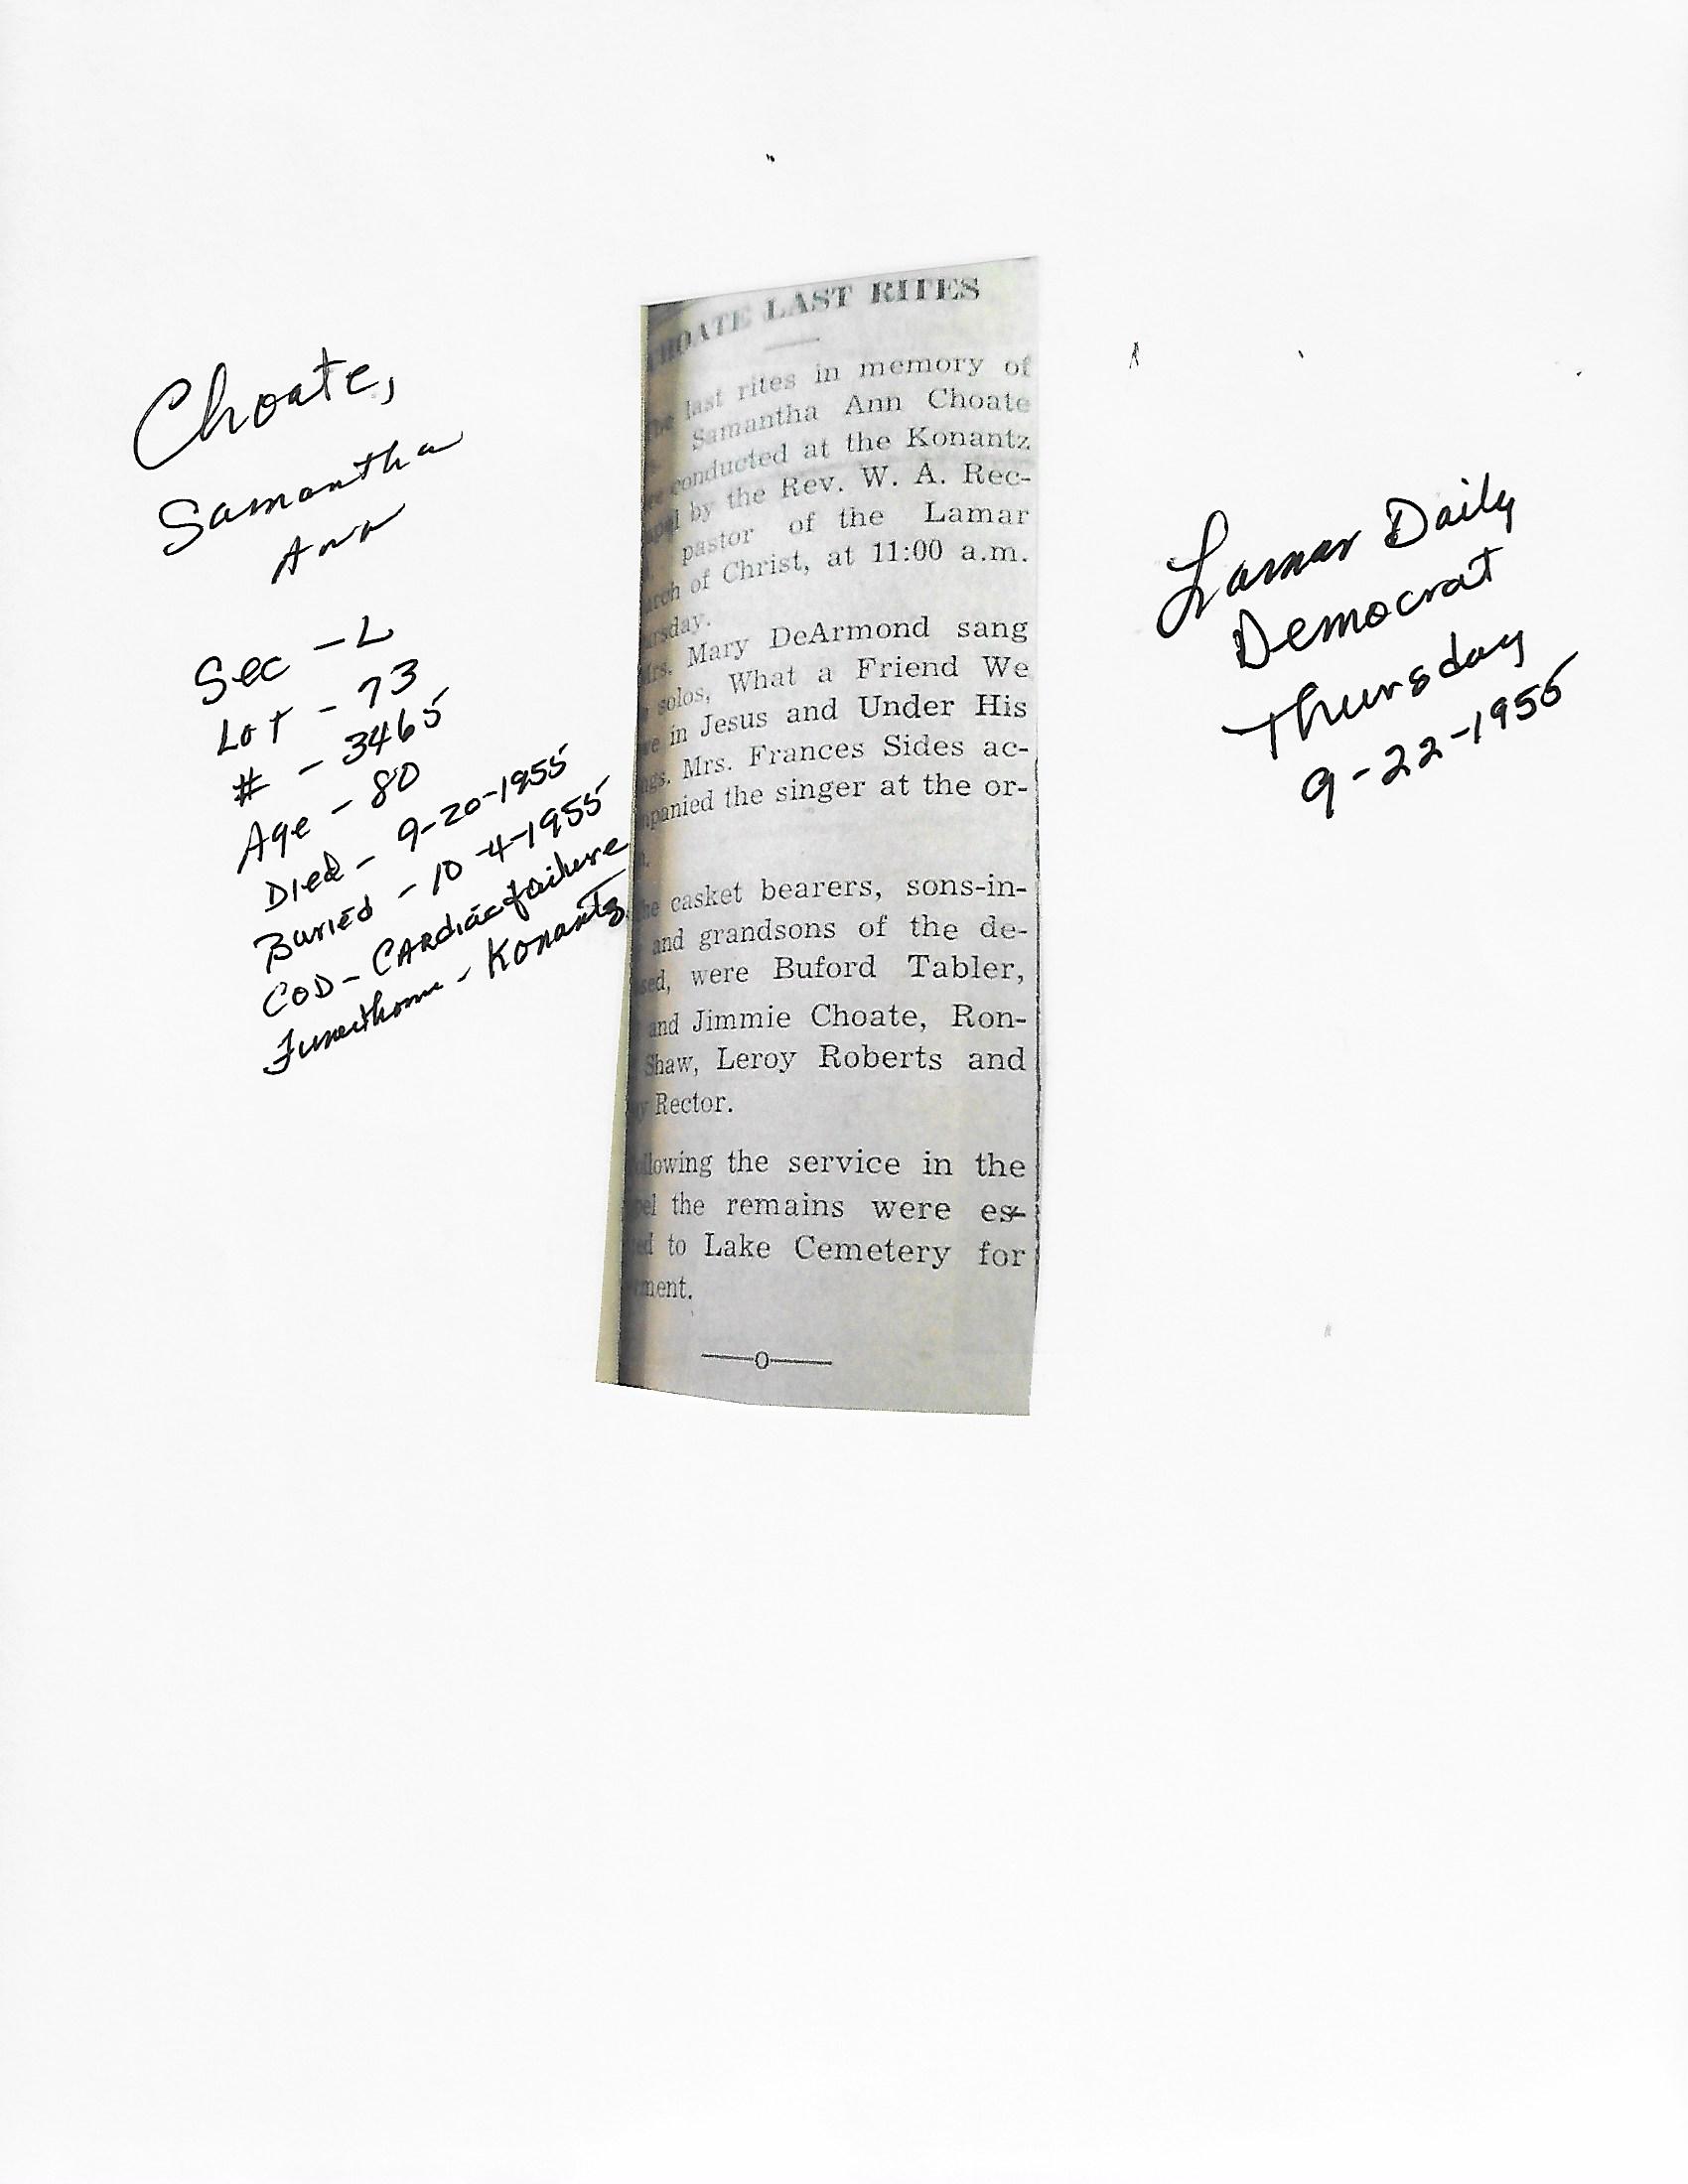 Choate,
Samantha
Ann
Sec - L
Lot - 73
# - 3465
Age - 80
Died - 9-20-1955
Buried - 10-4-1955
COD - CARdiac failure
Funerthome - Konantz
HOATE LAST RITES
The last rites in memory of
Samantha Ann Choate
conducted at the Konantz
apel by the Rev. W. A. Rec-
pastor of the Lamar
urch of Christ, at 11:00 a.m.
ursday.
Mrs. Mary DeArmond sang
solos, What a Friend We
ve in Jesus and Under His
ngs. Mrs. Frances Sides ac-
mpanied the singer at the or-
he casket bearers, sons-in-
and grandsons of the de-
sed, were Buford Tabler,
and Jimmie Choate, Ron-
Shaw, Leroy Roberts and
y Rector.
llowing the service in the
pel the remains were es-
ed to Lake Cemetery for
ment.
—O—
Lamar Daily
Democrat
Thursday
9-22-1955